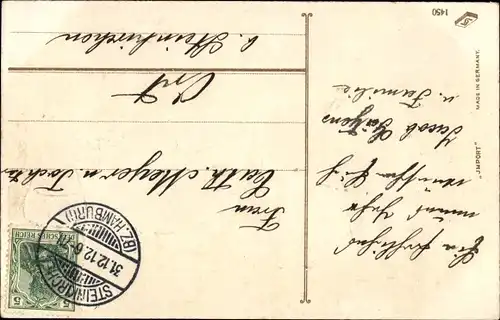 Ein fröhliches
neues Jahr
wünschen Euch
Jacob Gätgens
u. Familie
Frau
Cath. Meyer u. Tochter
Ort
b. Steinkirchen
STEINKIRCHEN
(BZ. HAMBURG)
31.12.12. 6
DEUTSCHES REICH
5 5
"IMPORT"
MADE IN GERMANY.
1450